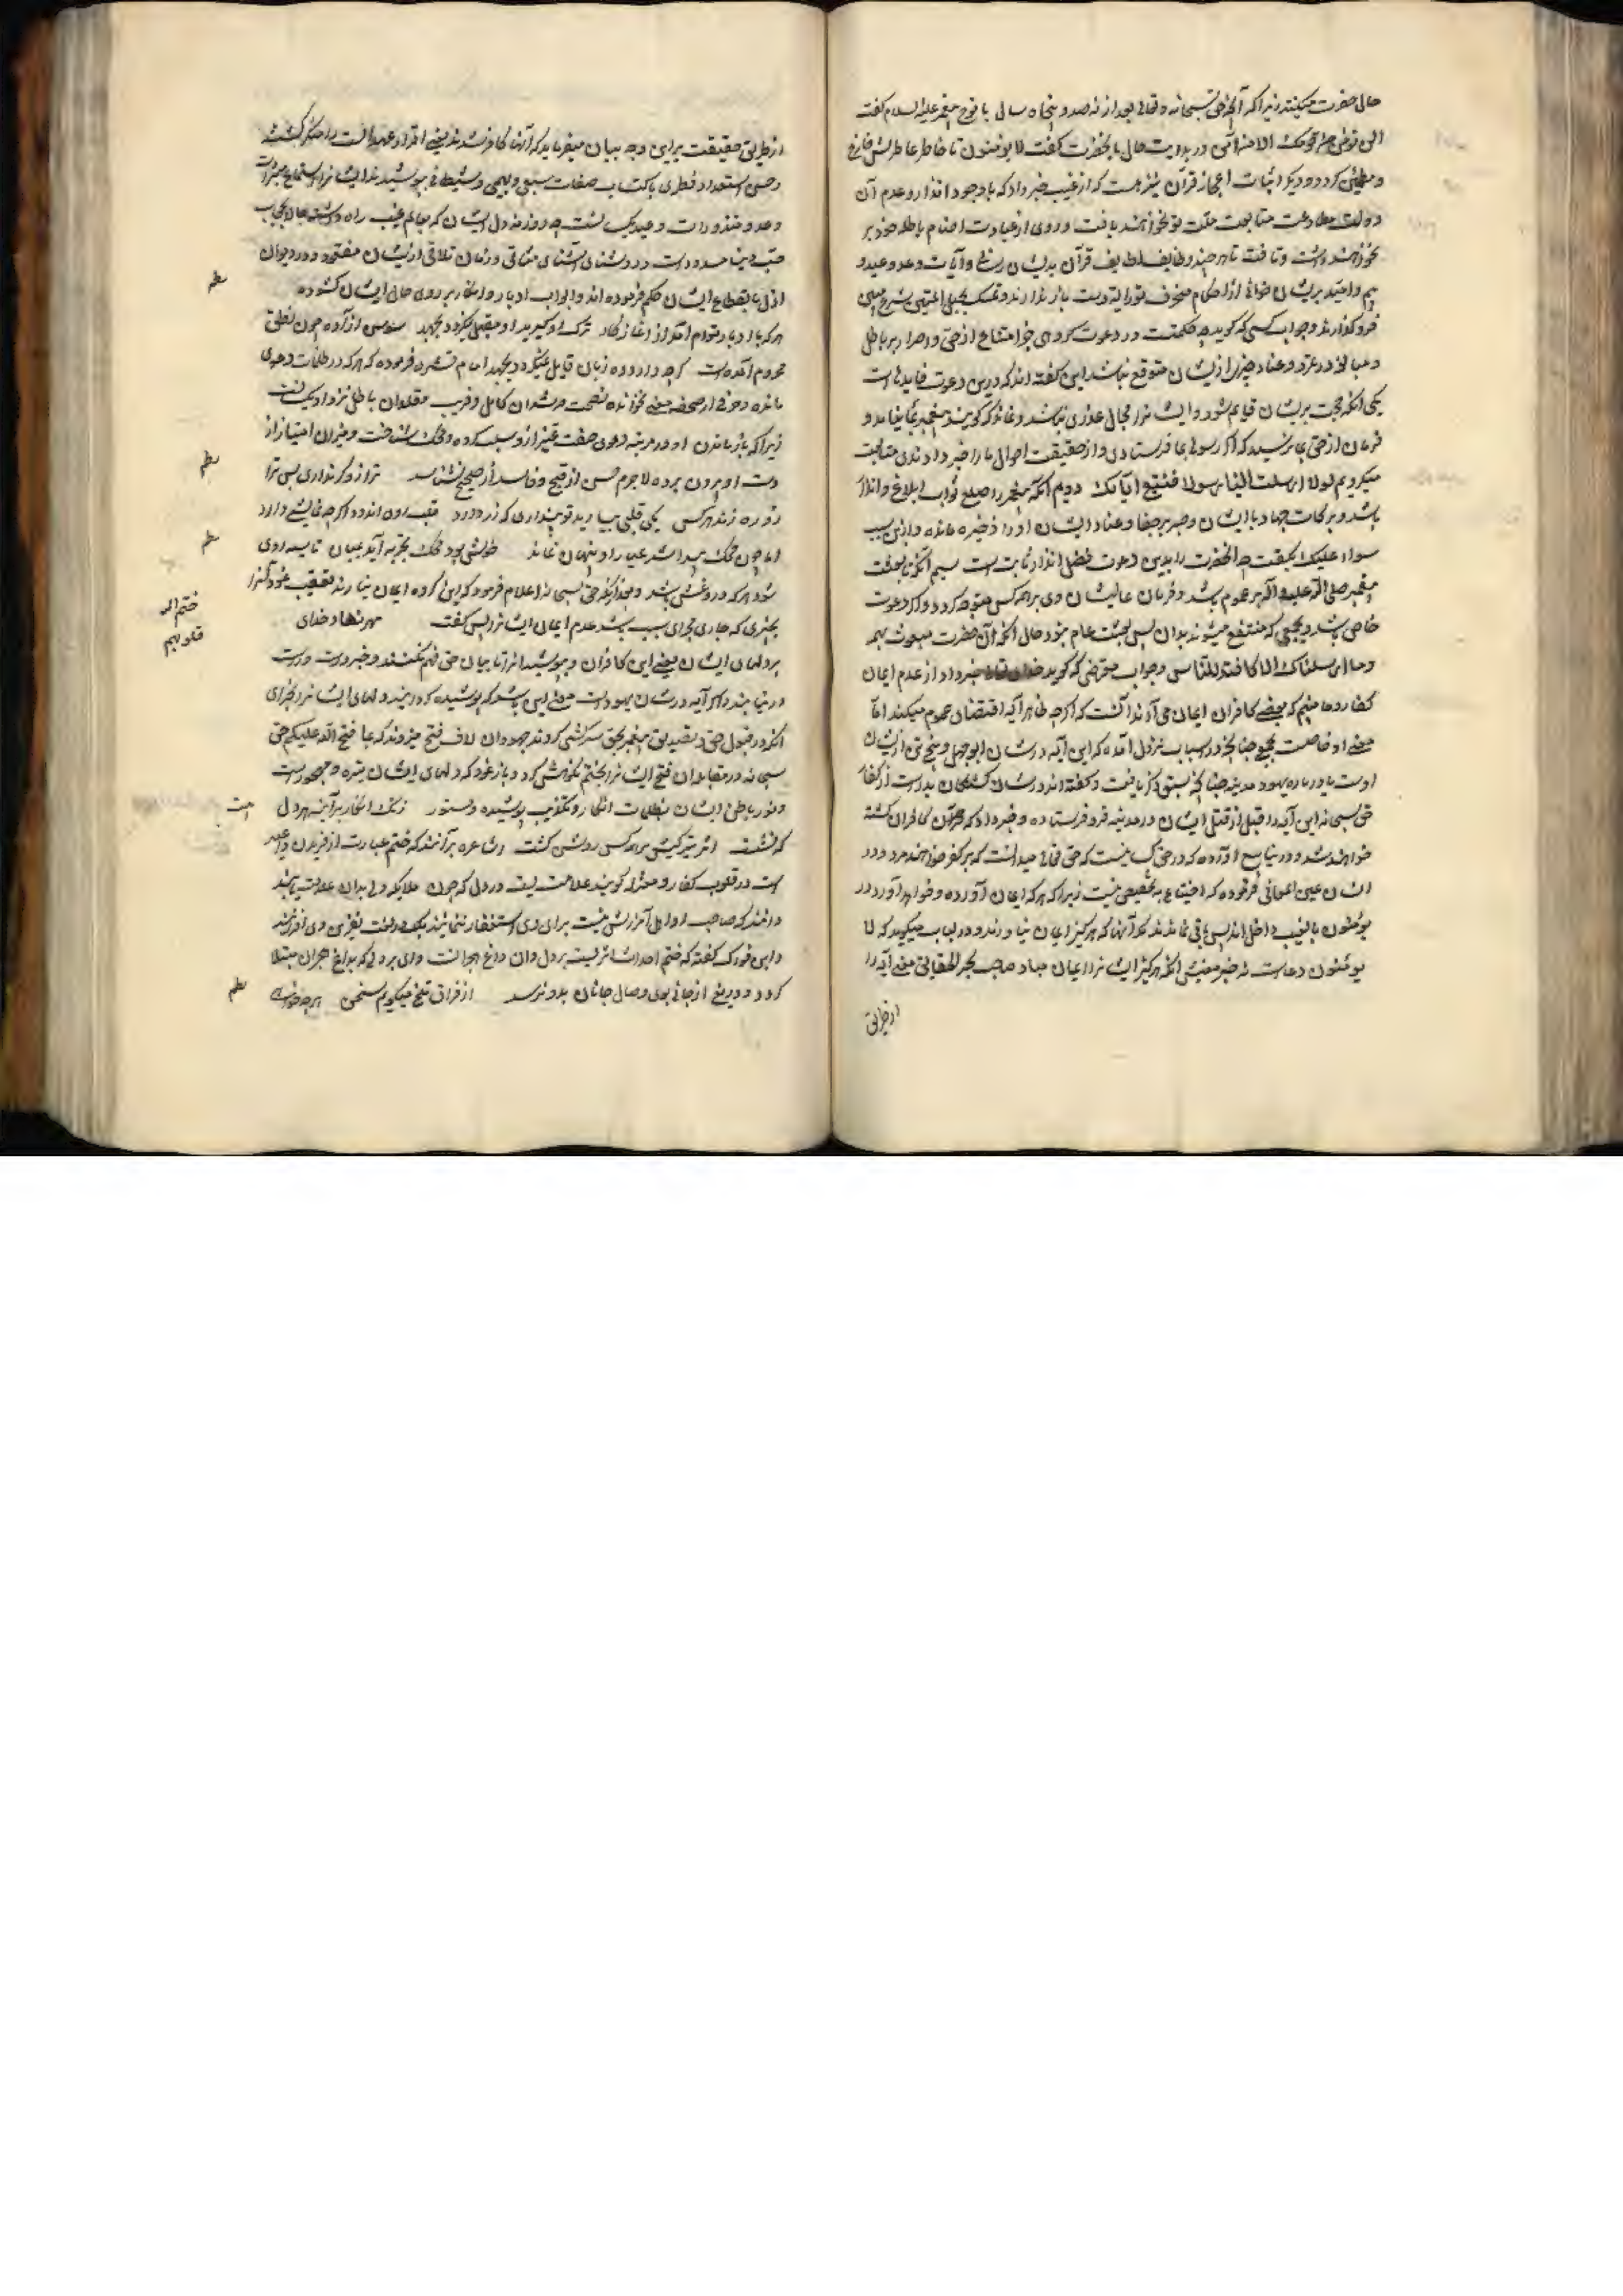 حال حضرت میکنند زیرا که آنچه حق سبحانه و تعالی بعد از نهصد و پنجاه سال با نوح پیغمبر علیه السلام گفت
الی نوح من قومک الا من آمن در بدایت حال با آنحضرت گفت لا یؤمنون تا خاطر عاطرش فارغ
و مطمئن گردد و دیگر اثبات اعجاز قرآن نیز هست که از غیب خبر داد که با وجود انذار و عدم آن
دولت مطاوعت متابعت ملت تو نخواهند یافت و روی از عبادت اصنام باطله خود بر
نخواهند داشت و تافت تا هر چند وظایف لطایف قرآن بدیشان رسانی و آیات وعد و وعید و
بیم و امید بریشان خوانی از احکام محرف توراة دست باز ندارند و تمسک بحبل المتین شرع مبین
فرو گذارند و جواب کسی که گوید چه حکمتست در دعوت گروهی جز امتناع از حق و اصرار بر باطل
و مبالغه در تمرد و عناد چیزی از ایشان متوقع نباشد این گفته اند که درین دعوت فایدهاست
یکی آنکه حجت بریشان قیام شود و ایشانرا مجال عذری نباشد و نماند که گویند پیغمبر بما نیامد و
فرمان از حق بما نرسید که اگر رسولی بما فرستادی و از حقیقت احوال ما را خبر دادندی متابعت
میکردیم لولا ارسلت الینا رسولا فنتبع آیاتک دویم آنکه پیغمبر را صلعم ثواب ابلاغ و انذار
باشد و برکات جهاد با ایشان و صبر بر جفا و عناد ایشان او را ذخیره ماند و ازین سبب
سواء علیک نگفت چه آنحضرت را بدین دعوت فضل انذار ثابت است سیم آنکه بعثت
پیغمبر صلی الله علیه و آله بر عموم باشد و فرمان عالیشان وی بر همه کس متوجه گردد و اگر دعوت
خاص باشد و بجمعی که منتفع میشوند بدان پس بعثت عام نبود حال آنکه آن حضرت مبعوث بهمه
و ما ارسلناک الا کافة للناس و جواب معترضی که گوید خبر داد از عدم ایمان
کفار و ما می بینیم که بعضی کافران ایمان می آرند آنست که اگرچه ظاهر آیه اقتضای عموم میکند اما
معنی او خاصست بجمعی چنانچه در اسباب نزول آمده که این آیه در شان ابوجهل و پنج تن از ایشان
اوست یا در باره یهود مدینه چنانکه سبق ذکر یافت و گفته اند در شان کشتگان بدرست از کفار
حق سبحانه این آیه را قبل از قتل ایشان در مدینه فرو فرستاده و خبر داد که کافران کشته
خواهند شد و در ینابیع آورده که در حق کسانیست که حق تعالی میدانست که بر کفر خواهند مرد و در
انسان عین المعانی فرموده که احتیاج به تخصیص نیست زیرا که هر که ایمان آورده و خواهد آورد در
یؤمنون بالغیب داخل اند پس باقی نماندند مگر آنها که هرگز ایمان نیارند و در لباب میگوید که لا
یؤمنون دعاست نه خبر معنیش آنکه هرگز ایشانرا ایمان مباد صاحب بحر الحقایق معنی آیه را
از طریق
از طریق حقیقت برین وجه بیان میفرماید که آنها کافر شدند یعنی اقرار عهد الست را منکر گشتند
و حسن استعداد فطری باکتساب صفات سبعی و بهیمی و شیطانی بپوشیدند ایشانرا استماع مبشرات
وعد و منذرات وعید یکسانست چه روزنه دل ایشان که بعالم غیب راه داشته بحجاب
مسدودست و روشنای آشنای میثاقی و زمان تلاقی از ایشان مفقود و در دیوان
ازل بانقطاع ایشان حکم فرموده اند و ابواب ادبار و انکار بر روی حال ایشان گشوده نظم
هر که با ادبار توام آمد از آغاز کار ترک او گیرید او مقبل نگردد بجهد سوسن آزاده چون نطق
محروم آمدست گرچه دارد ده زبان قایل نگردد بجهد امام قشیری فرموده که هر که در ظلمات دعوی
مانده و حرفی از صحیفه معنی نخوانده نصیحت مرشدان کامل و فریب مقلدان باطل نزد او یکسانست
زیرا که باز ماندن او در مرتبه دعوی صفت تمیز ازو سلب کرده و محک شناخت و میزان امتیاز از
دست او بیرون برده لاجرم حسن از قبیح و فاسد از صحیح نشناسد ترازو گر نداری پس ترا نظم
زو ره زند هر کس یکی قلبی بیاراید تو پنداری که زر دارد قلب زر اندوده اگرچه نمایشی دارد
اما چون محک پیدا شد عیار او پنهان نماند خوش بود گر محک تجربه آید بمیان تا سیه روی نظم
شود هر که درو غش باشد و بعد از آنکه حق سبحانه اعلام فرمود که این گروه ایمان نیارند تعقیب نمود آنرا
بخبری که جاری مجرای سبب باشد عدم ایمان ایشانرا پس گفت مهر نهاد خدای ختم الله
بر دلهای ایشان یعنی این کافران و بپوشید آنرا تا بیان حق فهم نکنند و خیر و رشد قلوبهم
در نیابند و اگر آیه در شان یهودست معنی این باشد که پوشیده گردانید دلهای ایشانرا بجزای
آنکه در قبول حق و تصدیق پیغمبر بحق سرکشی کردند یهودان لاف فتح میزدند که بما فتح الله علیکم حق
سبحانه در مقابله آن فتح ایشانرا بختم نکوهش کرد و باز نمود که دلهای ایشان تیره و مهجورست
و نور باطن ایشان بظلمات انکار و تکذیب پوشیده و مستور زنگ انکار بر آینه هر دل بیت
که نشست اثر تیرگیش بر همه کس روشن گشت اشاعره بر آنند که ختم عبارت از آفریدن
است در قلوب کفار و معتزله گویند علامتیست در دل که چون ملایکه دلی بدان علامت بینند
دانند که صاحب او اهل آمرزش نیست برای وی استغفار ننمایند بلکه لعنت و نفرین وی افزایند
و ابن فورک گفته که ختم احداث اثریست بر دل و آن داغ هجرانست وای بر دلی که بداغ هجران مبتلا
گردد و دریغ از جانی که بوی وصال جانان بدو نرسد از فراق تلخ میگویی سخن هر چه خواهی نظم